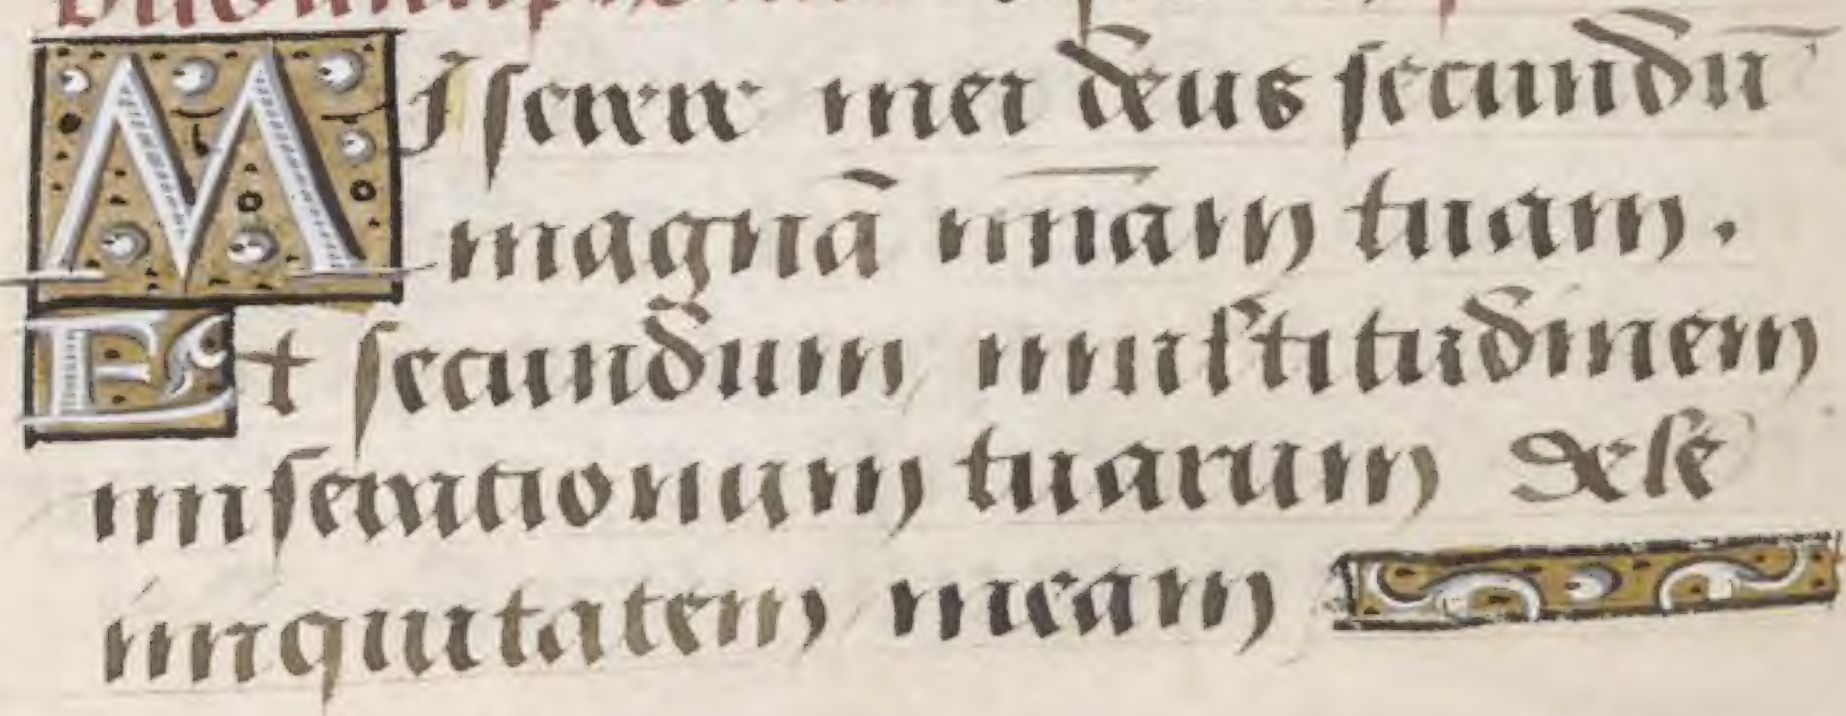 Miserere mei deus secundū
magnā miam̄ tuam.
Et secundum multitudinem
miserationum tuarum dele
iniquitatem meam